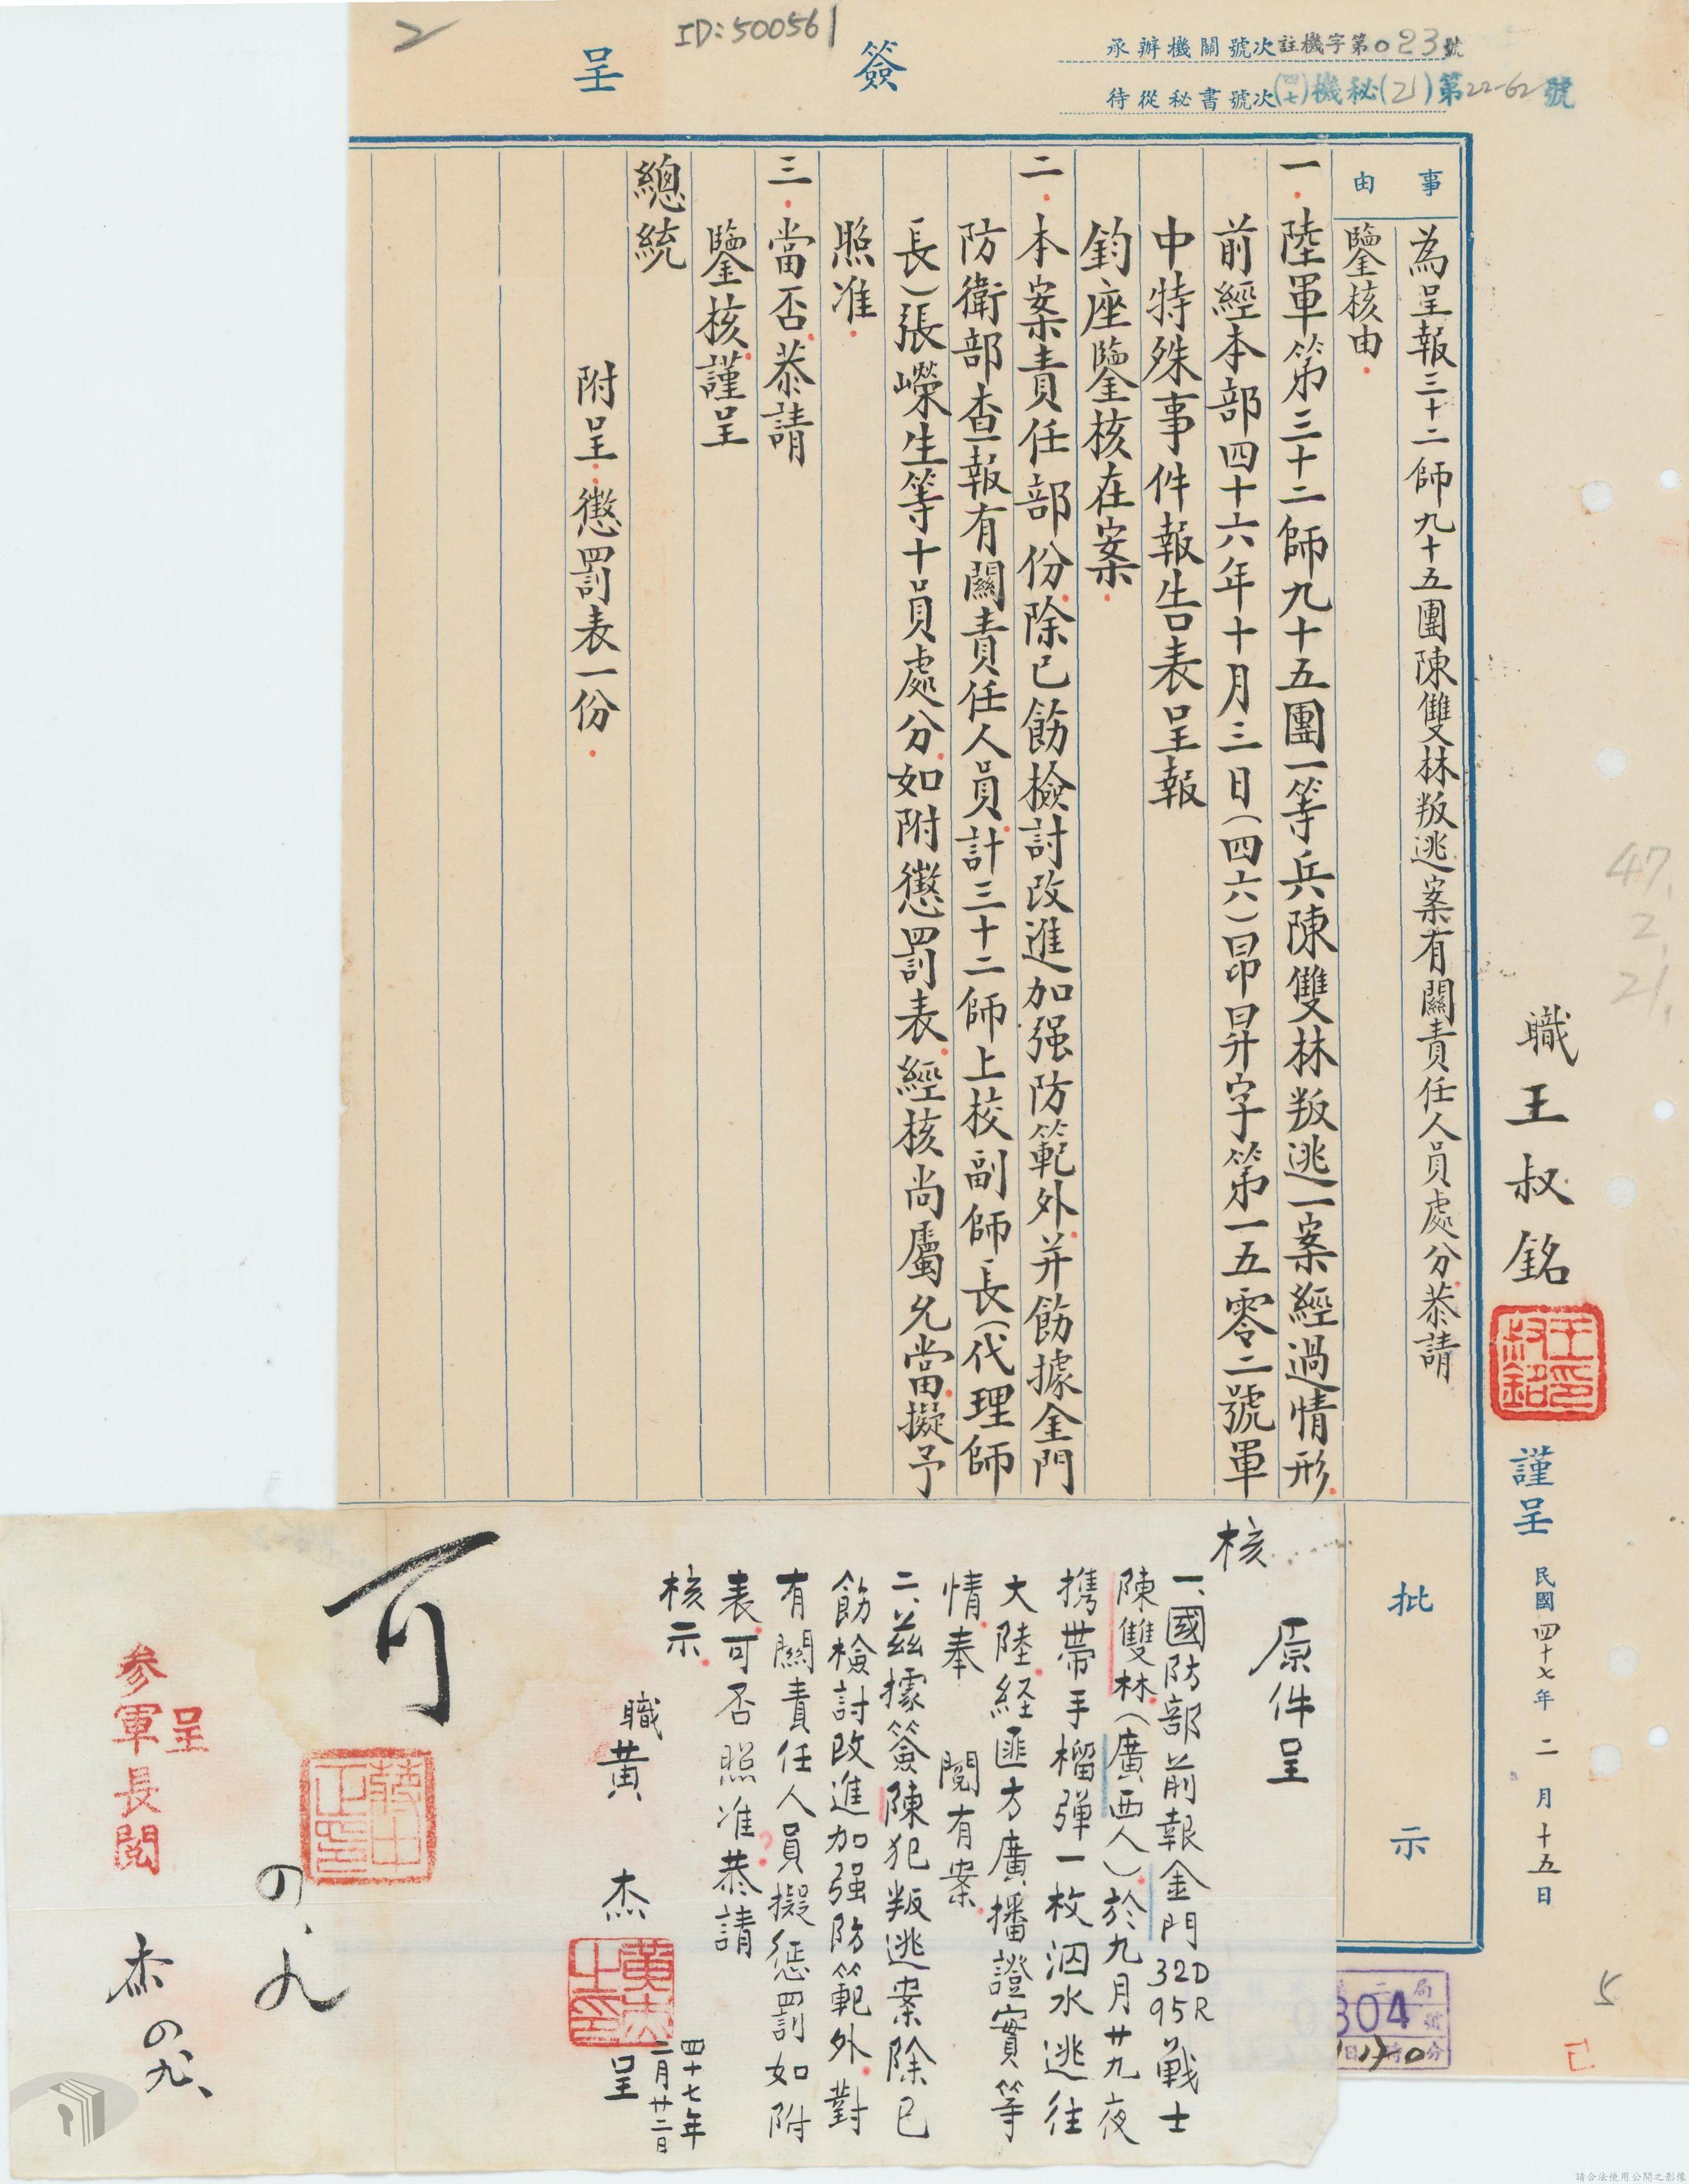 2
ID:500561
簽呈
承辦機關號次註機字第023號
待從秘書號次(四七)機秘(乙)第22-62號
事由
為呈報三十二師九十五團陳雙林叛逃案有關責任人員處分恭請
鑒核由.
一.陸軍第三十二師九十五團一等兵陳雙林叛逃一案經過情形
前經本部四十六年十月三日(四六)昂昇字第一五零二號軍
中特殊事件報告表呈報
鈞座鑒核在案.
二.本案責任部份除已飭檢討改進加强防範外并飭據金門
防衛部查報有關責任人員計三十二師上校副師長(代理師
長)張嶸生等十員處分如附懲罰表經核尚屬允當擬予
照准.
三.當否恭請
鑒核謹呈
總統
附呈.懲罰表一份.
職王叔銘
王印叔銘
謹呈
民國四十七年二月十五日
47.2.21.
批示
核
原件呈
一、國防部前報金門32D95R戰士
陳雙林(廣西人)於九月廿九夜
携帶手榴弹一枚泅水逃往
大陸経匪方廣播證實等
情奉 閱有案.
二、茲據簽陳犯叛逃案除已
飭檢討改進加强防範外對
有關責任人員擬懲罰如附
表可否照准恭請
核示.
職黃杰
呈
四十七年
二月廿二日
可
蔣中正印
呈
參軍長閱
杰
304
5
請合法使用公開之影像